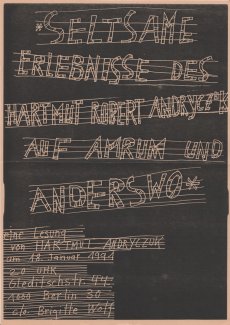 *SELTSAME
ERLEBNISSE DES
HARTMUT ROBERT ANDRYCZUK
AUF AMRUM UND
ANDERSWO*
eine Lesung
von HARTMUT ANDRYCZUK
am 18. Januar 1991
20 UHR
Gleditschstr. 44
1000 Berlin 30
c/o Brigitte Wolf